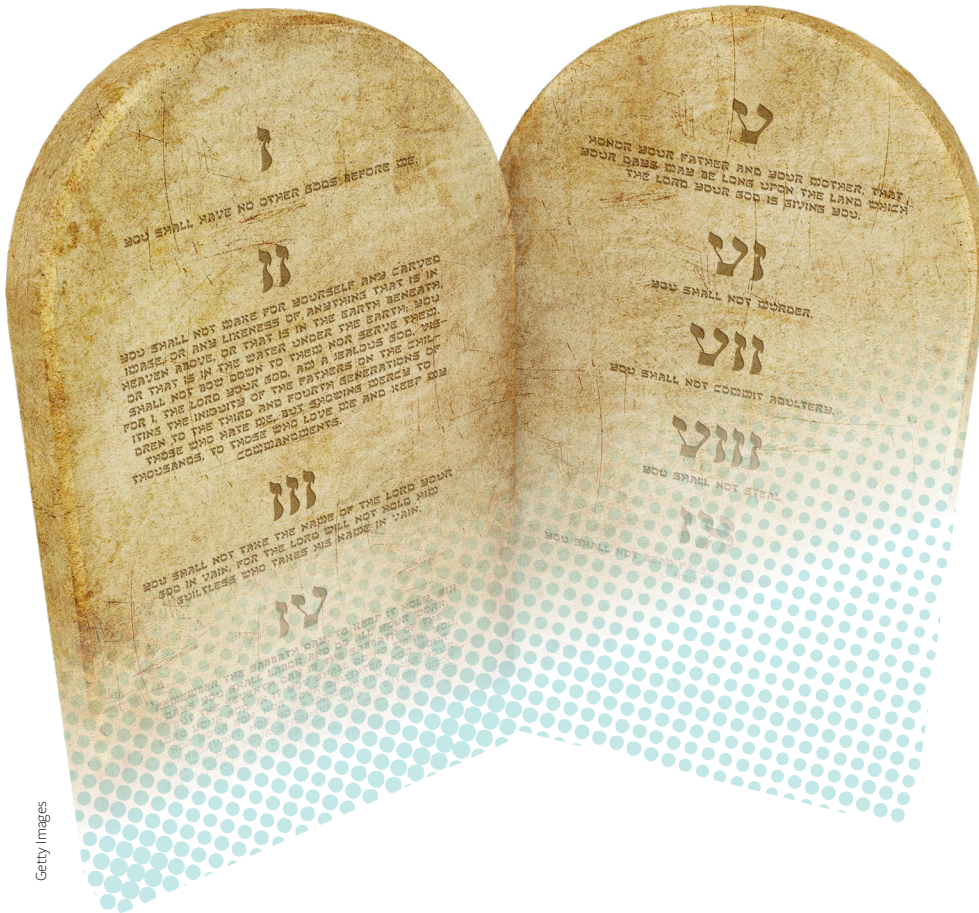 I
YOU SHALL HAVE NO OTHER GODS BEFORE ME.
II
YOU SHALL NOT MAKE FOR YOURSELF ANY CARVED
IMAGE, OR ANY LIKENESS OF ANYTHING THAT IS IN
HEAVEN ABOVE, OR THAT IS IN THE EARTH BENEATH,
OR THAT IS IN THE WATER UNDER THE EARTH; YOU
SHALL NOT BOW DOWN TO THEM NOR SERVE THEM.
FOR I, THE LORD YOUR GOD, AM A JEALOUS GOD, VIS-
ITING THE INIQUITY OF THE FATHERS ON THE CHIL-
DREN TO THE THIRD AND FOURTH GENERATIONS OF
THOSE WHO HATE ME, BUT SHOWING MERCY TO
THOUSANDS, TO THOSE WHO LOVE ME AND KEEP MY
COMMANDMENTS.
III
YOU SHALL NOT TAKE THE NAME OF THE LORD YOUR
GOD IN VAIN, FOR THE LORD WILL NOT HOLD HIM
GUILTLESS WHO TAKES HIS NAME IN VAIN.
IV
REMEMBER THE SABBATH DAY, TO KEEP IT HOLY. SIX
DAYS YOU SHALL LABOR AND DO ALL YOUR WORK,
V
HONOR YOUR FATHER AND YOUR MOTHER, THAT
YOUR DAYS MAY BE LONG UPON THE LAND WHICH
THE LORD YOUR GOD IS GIVING YOU.
VI
YOU SHALL NOT MURDER.
VII
YOU SHALL NOT COMMIT ADULTERY.
VIII
YOU SHALL NOT STEAL.
IX
YOU SHALL NOT
Getty Images